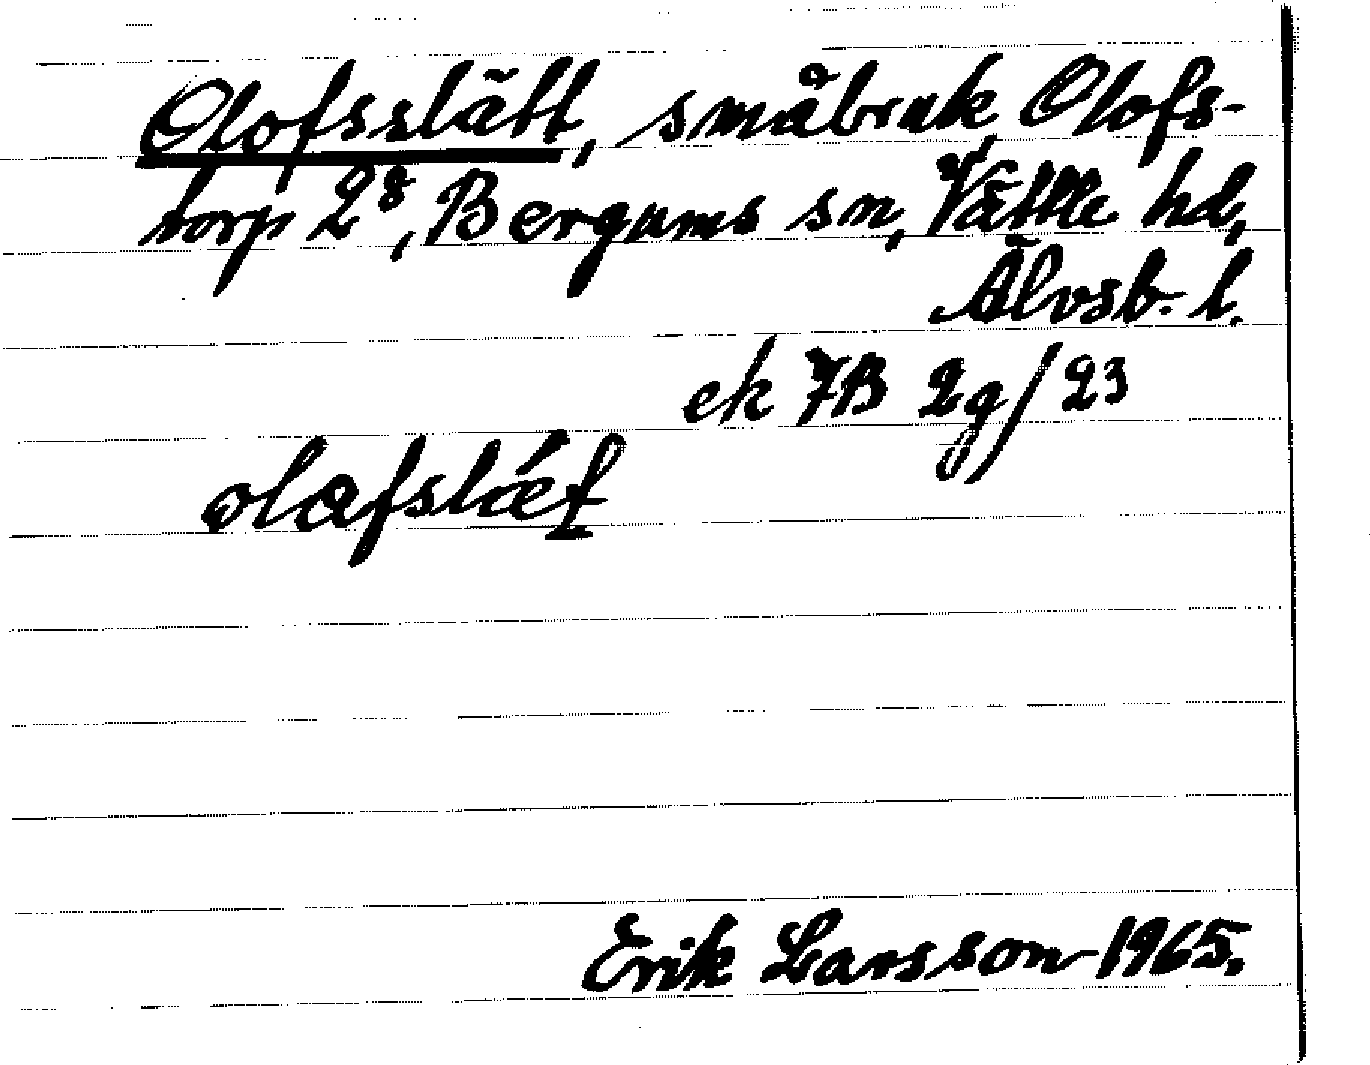 Olofsslätt, småbruk, Olofs-
torp 2⁸, Bergums sn, Vättle hd,
Älvsb. l.
ek 7B 2g/23
olafslǽt
Erik Larsson 1965.